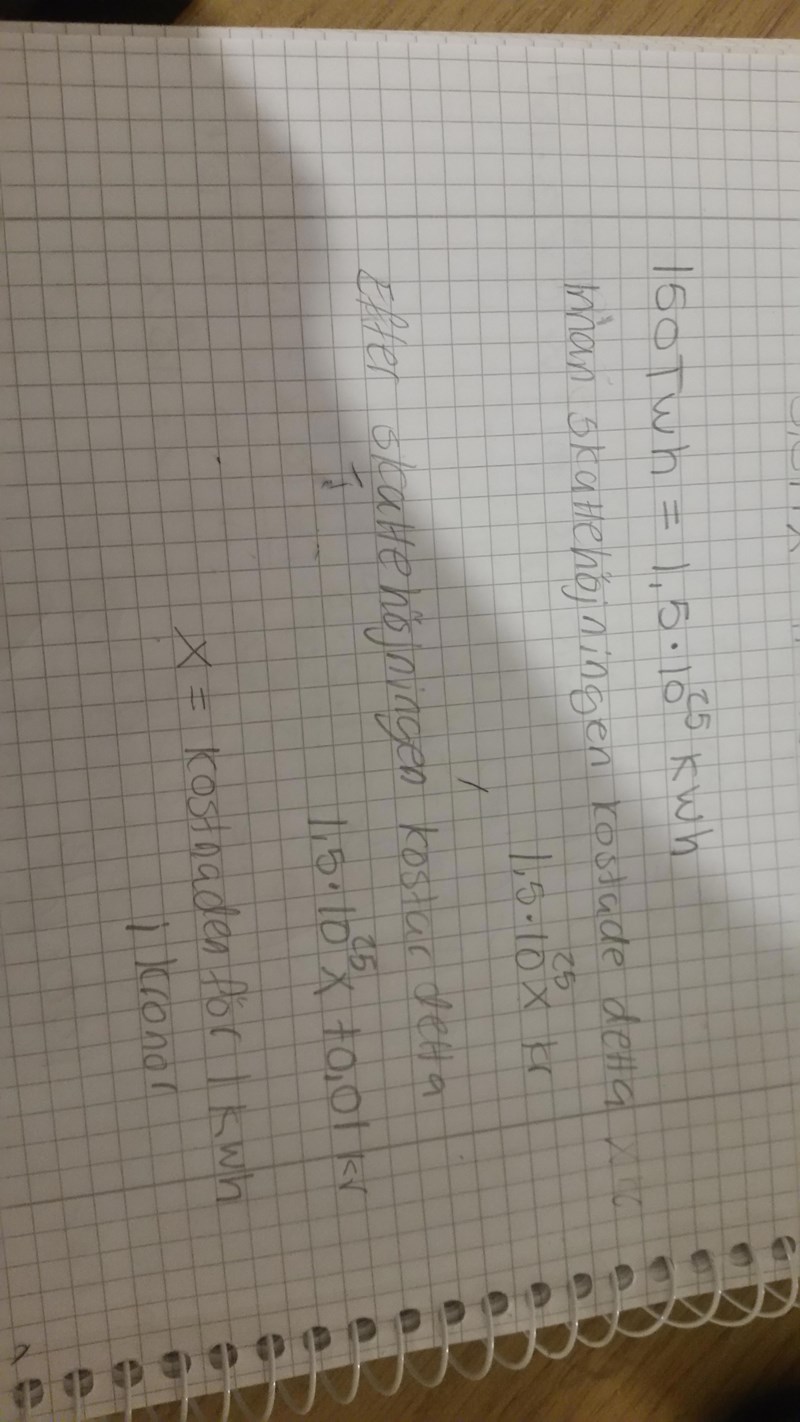 150Twh = 1,5·10²⁵ kwh
Innan skattehöjningen kostade detta
1,5·10²⁵x kr
Efter skattehöjningen kostar detta
1,5·10²⁵x +0,01kr
x = kostnaden för 1 kwh
i kronor